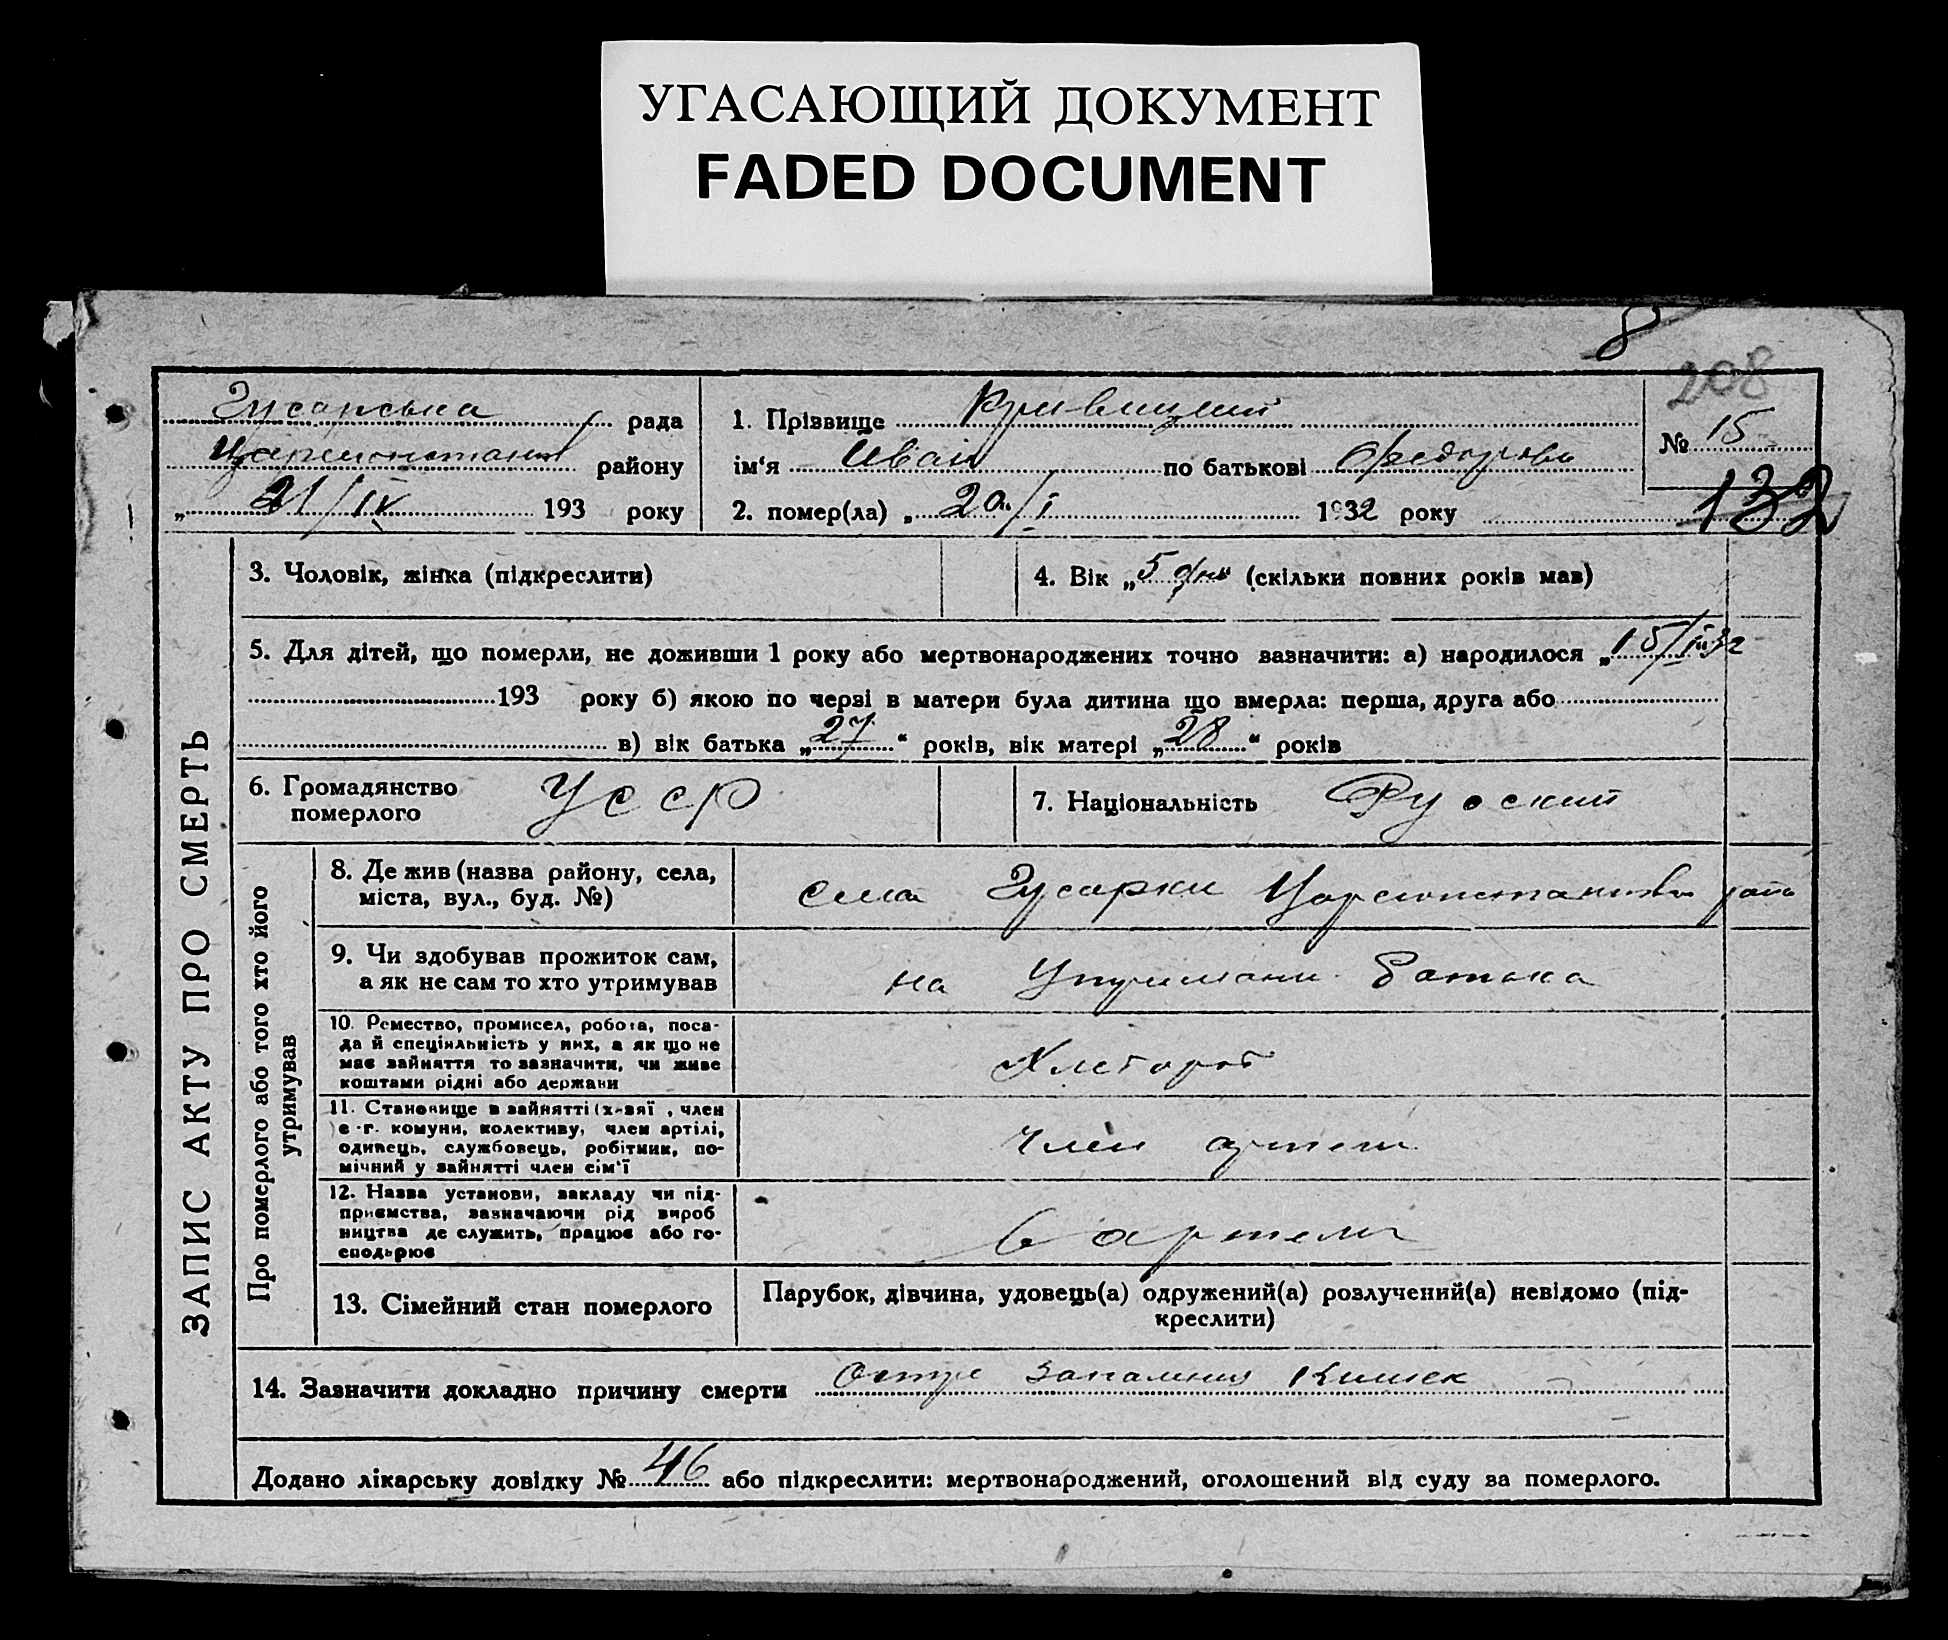 УГАСАЮЩИЙ ДОКУМЕНТ
FADED DOCUMENT
8
208
Гусарська рада
району
„ 21/IV 193 року
1. Прізвище Кривицкий
ім'я Иван по батькові Федорови
2. помер(ла) „ 20 1932 року
№ 15
132
ЗАПИС АКТУ ПРО СМЕРТЬ
3. Чоловік, жінка (підкреслити)
4. Вік „5 дн" (скільки повних років мав)
5. Для дітей, що померли, не доживши 1 року або мертвонароджених точно зазначити: а) народилося „15/
193 року б) якою по черзі в матери була дитина що вмерла: перша, друга або
в) вік батька „27" років, вік матері „28" років
6. Громадянство
померлого
УССР
7. Національність Руский
Про померлого або того хто його
утримував
8. Де жив (назва району, села,
міста, вул., буд. №)
села Гусарки Царсконстантинов
9. Чи здобував прожиток сам,
а як не сам то хто утримував
на утримани батька
10. Ремество, промисел, робота, поса-
да й спеціяльність у них, а як що не
має зайняття то зазначити, чи живе
коштами рідні або держави
Хлебороб
11. Становище в зайнятті (х-зяї , член
с.-г. комуни, колективу, член артілі,
одинець, службовець, робітник, по-
мічний у зайнятті член сім'ї
член артели
12. Назва установи, закладу чи під-
приємства, зазначаючи рід вироб
ництва де служить, працює або го-
сподьрює
в артели
13. Сімейний стан померлого
Парубок, дівчина, удовець(а) одружений(а) розлучений(а) невідомо (під-
креслити)
14. Зазначити докладно причину смерти запаления Кишек
Додано лікарську довідку № 46 або підкреслити: мертвонароджений, оголошений від суду за померлого.